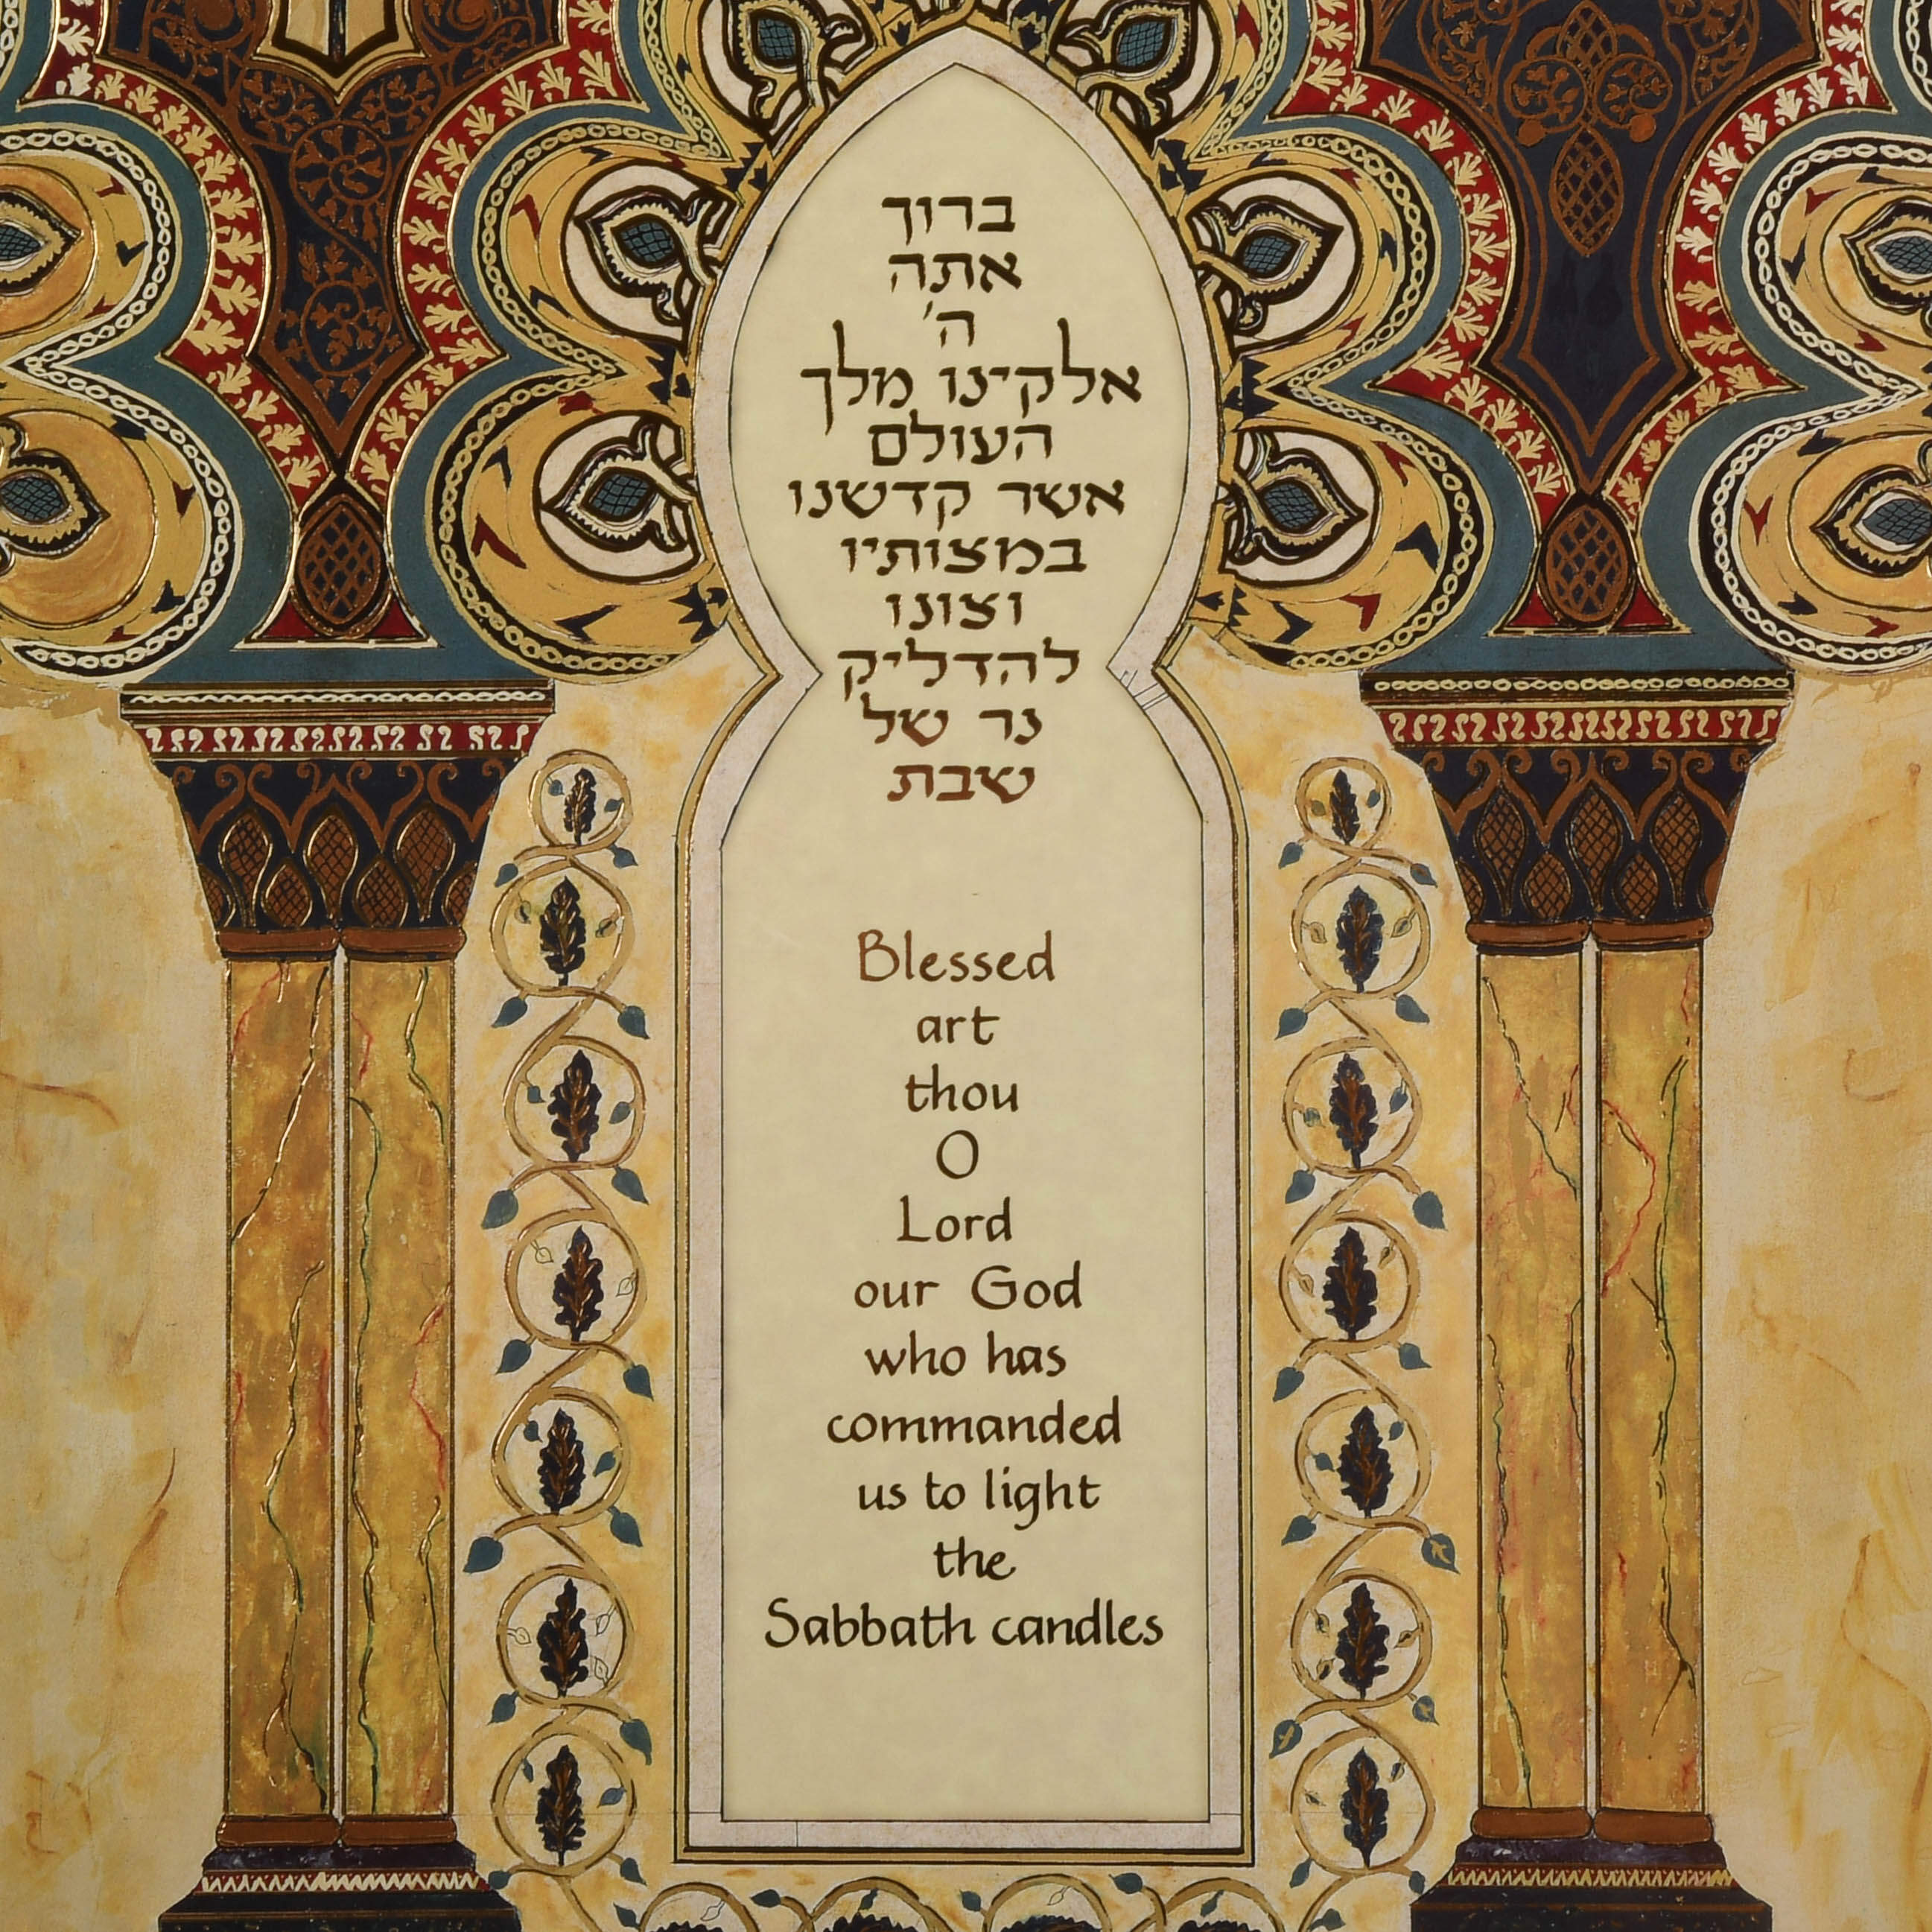 ברוך
אתה
ה'
אלקינו מלך
העולם
אשר קדשנו
במצותיו
וצונו
להדליק
נר של
שבת
Blessed
art
thou
O
Lord
our God
who has
commanded
us to light
the
Sabbath candles